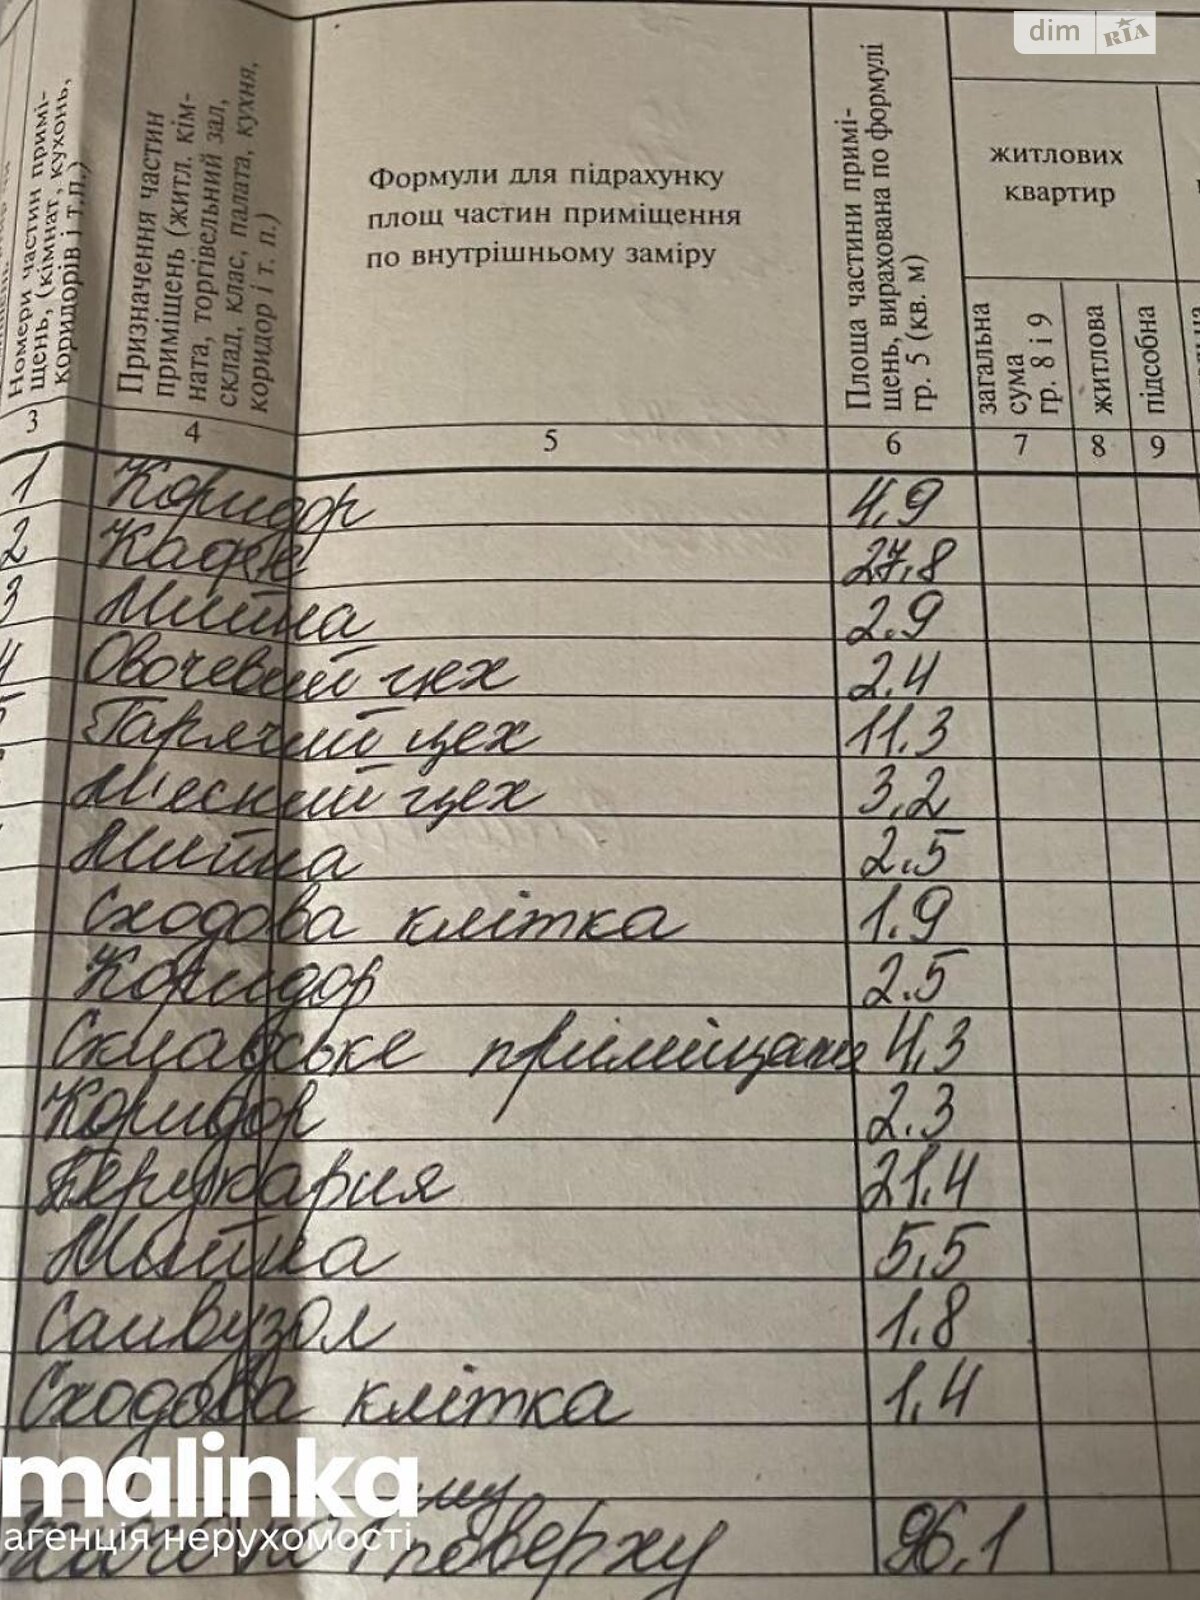 dim RIA
Номери частин примі-
щень, (кімнат, кухонь,
коридорів і т.п.)
Призначення частин
приміщень (житл. кім-
ната, торгівельний зал,
склад, клас, палата, кухня,
коридор і т. п.)
Формули для підрахунку
площ частин приміщення
по внутрішньому заміру
Площа частини примі-
щень, вирахована по формулі
гр. 5 (кв. м)
житлових
квартир
загальна
сума
гр. 8 і 9
житлова
підсобна
3 4 5 6 7 8 9
1 Коридор 4,9
2 Кафе 27,8
3 Мийна 2.9
4 Овочевий цех 2.4
5 Гарячий цех 11.3
М'ясний цех 3,2
Мийна 2.5
Сходова клітка 1.9
Коридор 2.5
Складське приміщення 4,3
Коридор 2.3
Перукарня 21.4
Мийна 5,5
Санвузол 1.8
Сходова клітка 1,4
поверху 96,1
malinka
агенція нерухомості